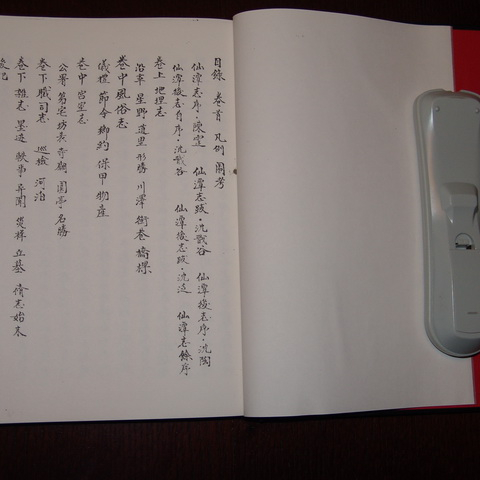 目錄 卷首 凡例 圖考
仙潭志序·陳霆 仙潭志跋·沈戬谷 仙潭後志序·沈陶
仙潭後志序·沈戬谷 仙潭後志跋·沈 仙潭志餘序
卷上 地理志
沿革 星野 道里 形勝 川澤 街巷 橋樑
卷中風俗志
儀禮 節令 鄉約 保甲 物產
卷中 宮室志
公署 第宅 坊表 寺廟 園亭 名勝
卷下 職司志 巡檢 河泊
卷下 雜志 墨迹 軼事 弃聞 災祥 丘墓 脩志始末
後記